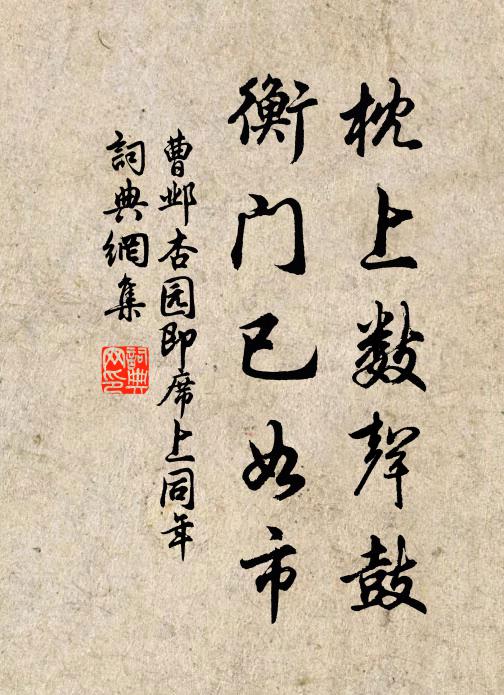 枕上数聲鼓
衡门已如市
曹邺杏园即席上同年
詞典網集
詞典网印